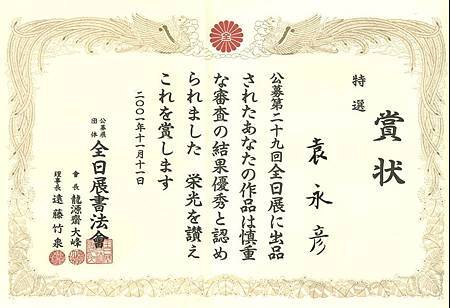 賞状
特選
袁永彦
公募第二十九回全日展に出品
されたあなたの作品は慎重
な審査の結果優秀と認め
られました 栄光を讃え
これを賞します
二〇〇一年十一月十一日
公募展
団体
全日展書法會
會長 龍源齋大峰
理事長 遠藤竹泉